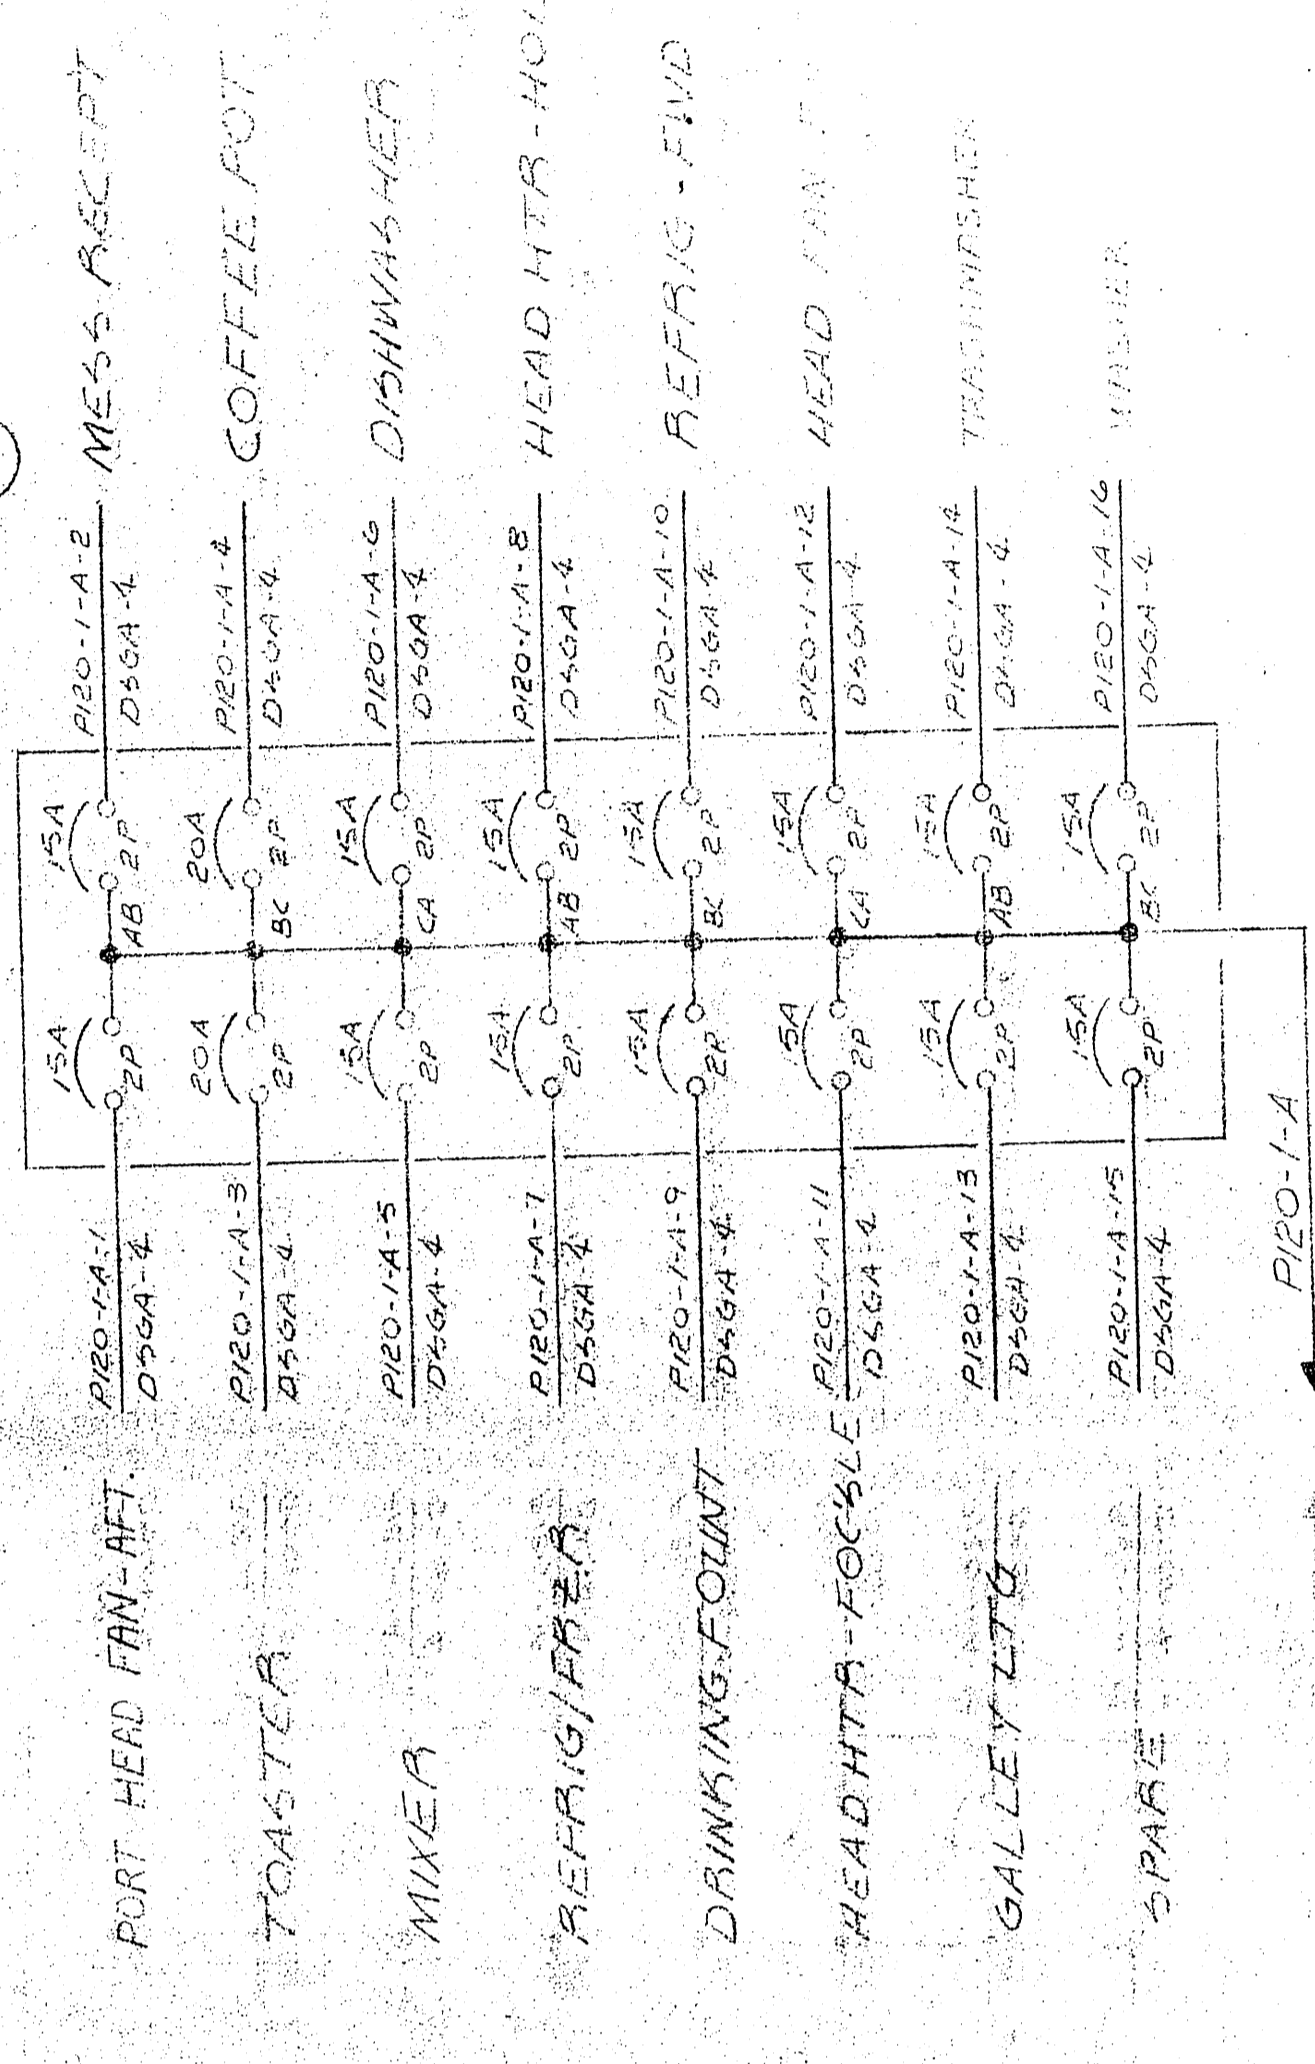 PORT HEAD FAN-AFT.
P120-1-A-1
DSGA-4
15A
2P
AB
15A
2P
P120-1-A-2
DSGA-4
MESS RECEPT
TOASTER
P120-1-A-3
DSGA-4
20A
2P
BC
20A
2P
P120-1-A-4
DSGA-4
COFFEE POT
MIXER
P120-1-A-5
DSGA-4
15A
2P
CA
15A
2P
P120-1-A-6
DSGA-4
DISHWASHER
REFRIG/FRZER
P120-1-A-7
DSGA-4
15A
2P
AB
15A
2P
P120-1-A-8
DSGA-4
HEAD HTR-
DRINKING FOUNT
P120-1-A-9
DSGA-4
15A
2P
BC
15A
2P
P120-1-A-10
DSGA-4
REFRIG-FWD
HEAD HTR-FOC'SLE
P120-1-A-11
DSGA-4
15A
2P
CA
15A
2P
P120-1-A-12
DSGA-4
HEAD FAN
GALLEY LTG
P120-1-A-13
DSGA-4
15A
2P
AB
15A
2P
P120-1-A-14
DSGA-4
SPARE
P120-1-A-15
DSGA-4
15A
2P
BC
15A
2P
P120-1-A-16
DSGA-4
WASHER
P120-1-A